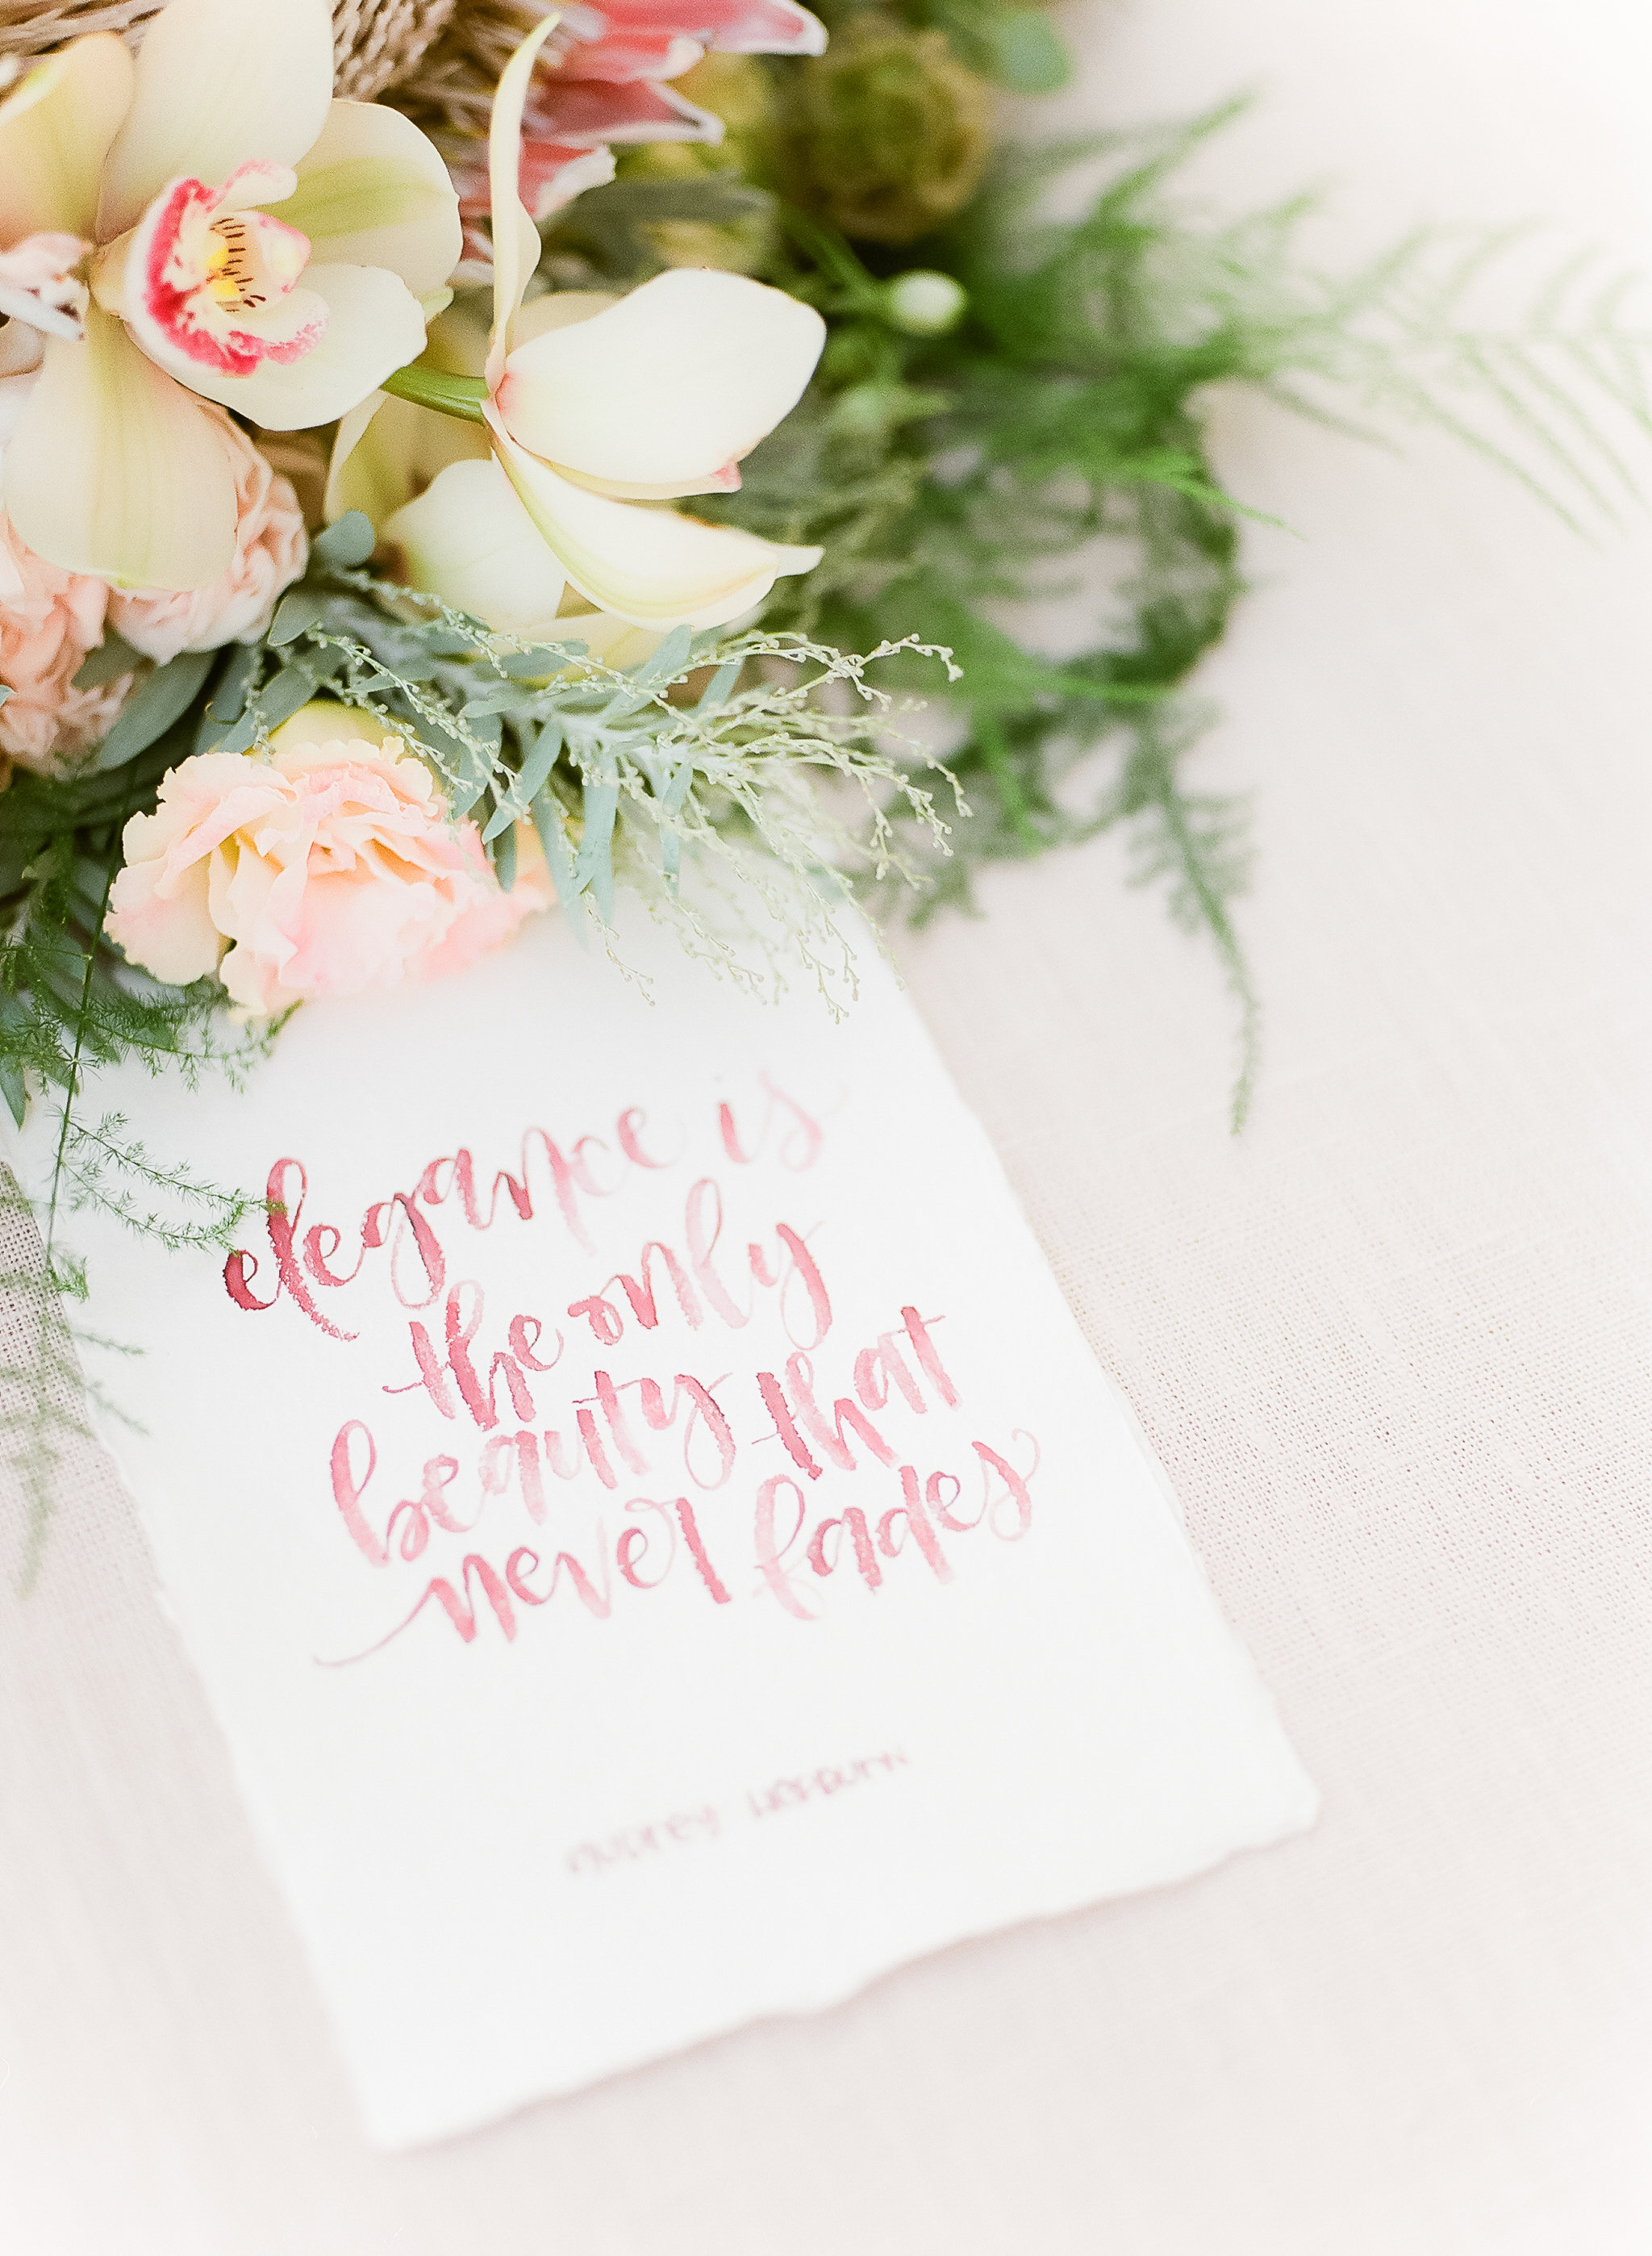 elegance is
the only
beauty that
never fades
audrey hepburn